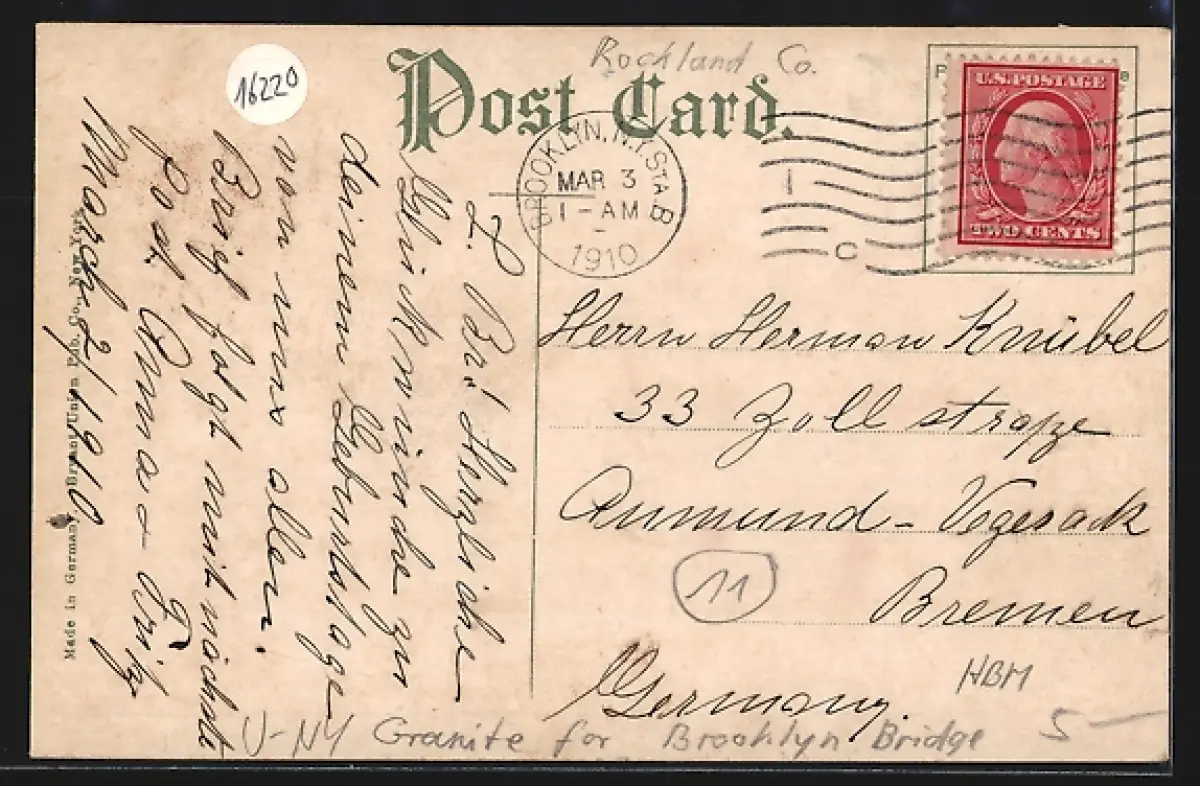 16220
Rockland Co.
Post Card.
BROOKLYN, N.Y. STA. B
MAR 3
1-AM
1910
C
U.S. POSTAGE
TWO CENTS
L. Br! Herzliche
Glückwünsche zu
deinem Geburtstage
von uns allen.
Brief folgt mit nächste
Post. Anna & Fritz
March 2/1910
Made in Germany. Bryant Union Pub. Co., New York
Herrn Herman Knübel
33 Zollstraße
Aumund - Vegesack
Bremen
Germany.
11
HBM
U-NY Granite for Brooklyn Bridge 5-